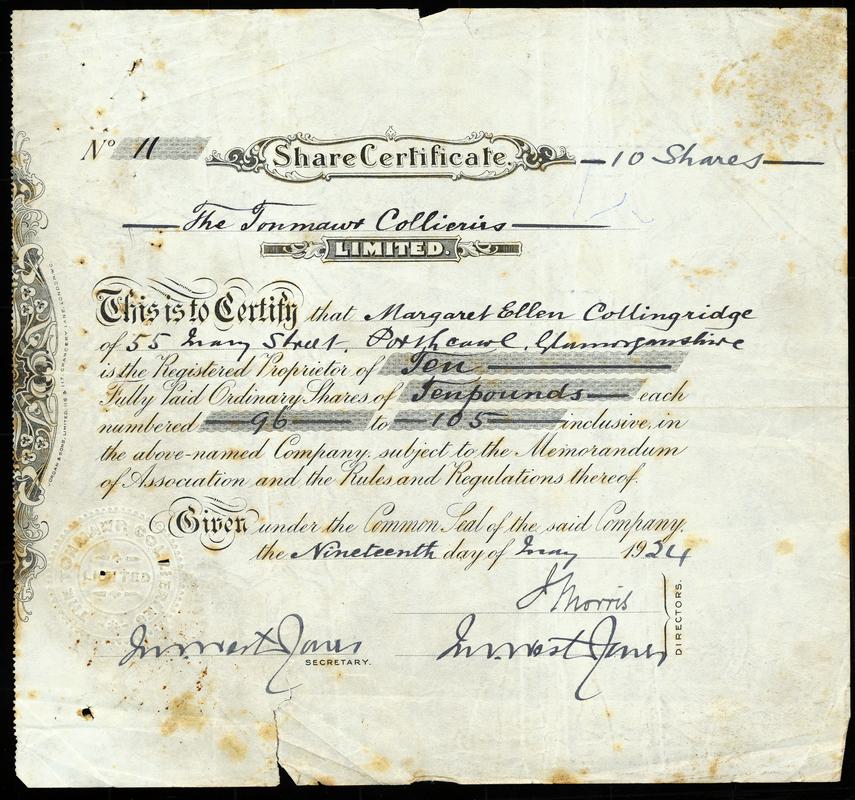 Nº 11 Share Certificate. 10 Shares
The Tonmawr Collieries
LIMITED.
This is to Certify that Margaret Ellen Collingridge
of 55 Mary Street, Porthcawl, Glamorganshire
is the Registered Proprietor of Ten
Fully Paid Ordinary Shares of Ten pounds each
numbered 96 to 105 inclusive, in
the above-named Company, subject to the Memorandum
of Association and the Rules and Regulations thereof.
Given under the Common Seal of the said Company,
the Nineteenth day of May 1924
J Morris
Jones
SECRETARY.
Jones
DIRECTORS.
JORDAN & SONS, LIMITED, 116 & 117 CHANCERY LANE, LONDON, W.C.
THE TONMAWR COLLIERIES
LIMITED